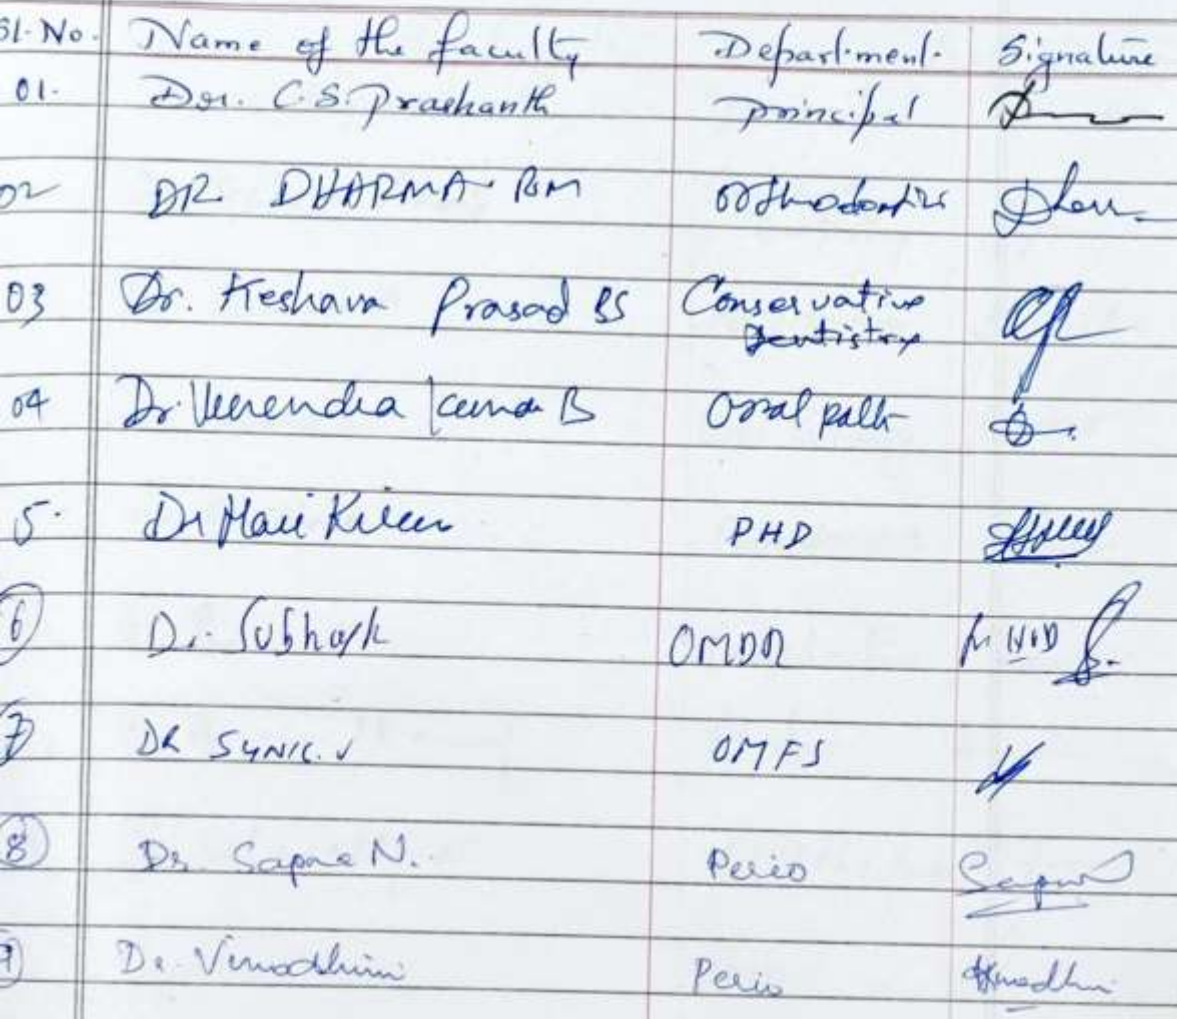 Sl. No. Name of the faculty Department. Signature
01. Dr. C.S. Prashanth Principal
02 DR. DHARMA. RM Orthodontics Dhar
03 Dr. Keshava Prasad BS Conservative
Dentistry
04 Dr. Veerendra Kumar B Oral path
5. Dr Hari Kiran PHD
6 Dr. Subhash OMDR
7 DR SUNIL. V OMFS
8 Dr. Sapna N. Perio Sapna
9 Dr. Vinodhini Perio Vinodhini